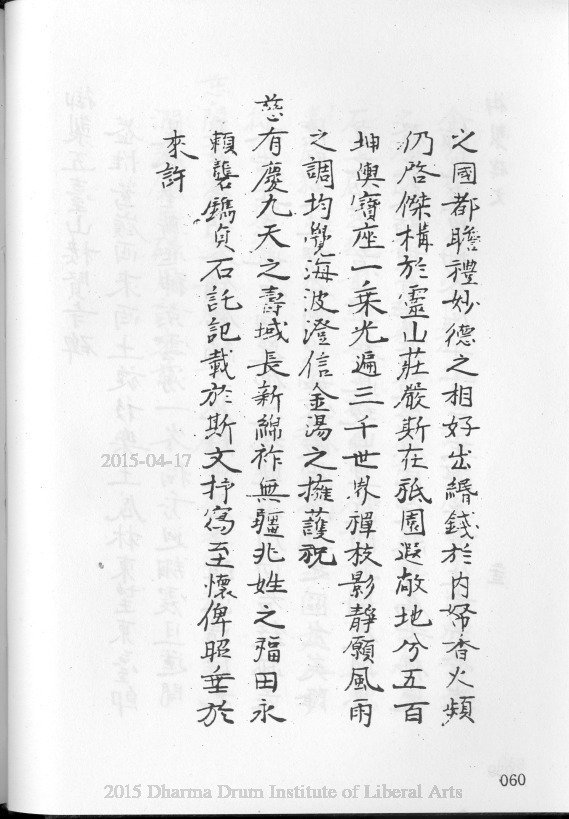 之國都瞻禮妙德之相好出緡錢於內帑香火頻
仍啓傑構於靈山莊嚴斯在祇園遐敞地分五百
坤輿寶座一乘光遍三千世界禪枝影靜願風雨
之調均覺海波澄信金湯之擁護祝
慈有慶九天之壽域長新綿祚無疆兆姓之福田永
賴襲鐫貞石託記載於斯文抒寫至懷俾昭垂於
來許
2015-04-17
060
2015 Dharma Drum Institute of Liberal Arts